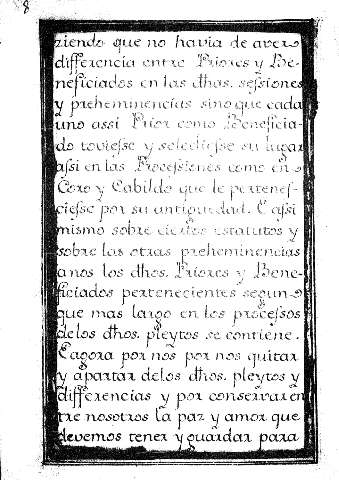 8
ziendo que no havia de aver
differencia entre Priores y Be-
neficiados en las dhas. sessiones
y preheminencias sino que cada
uno assi Prior como Beneficia-
do toviesse y selediesse su lugar
assi en las Processiones como en
Coro y Cabildo que le pertenes-
ciesse por su antiguedad. E assi
mismo sobre ciertos estatutos y
sobre las otras preheminencias
a nos los dhos. Priores y Bene-
ficiados pertenecientes segun
que mas largo en los processos
delos dhos. pleytos se contiene.
E agora por nos por nos quitar
y apartar delos dhos. pleytos y
differencias y por conservar en
tre nosotros la paz y amor que
devemos tener y guardar para